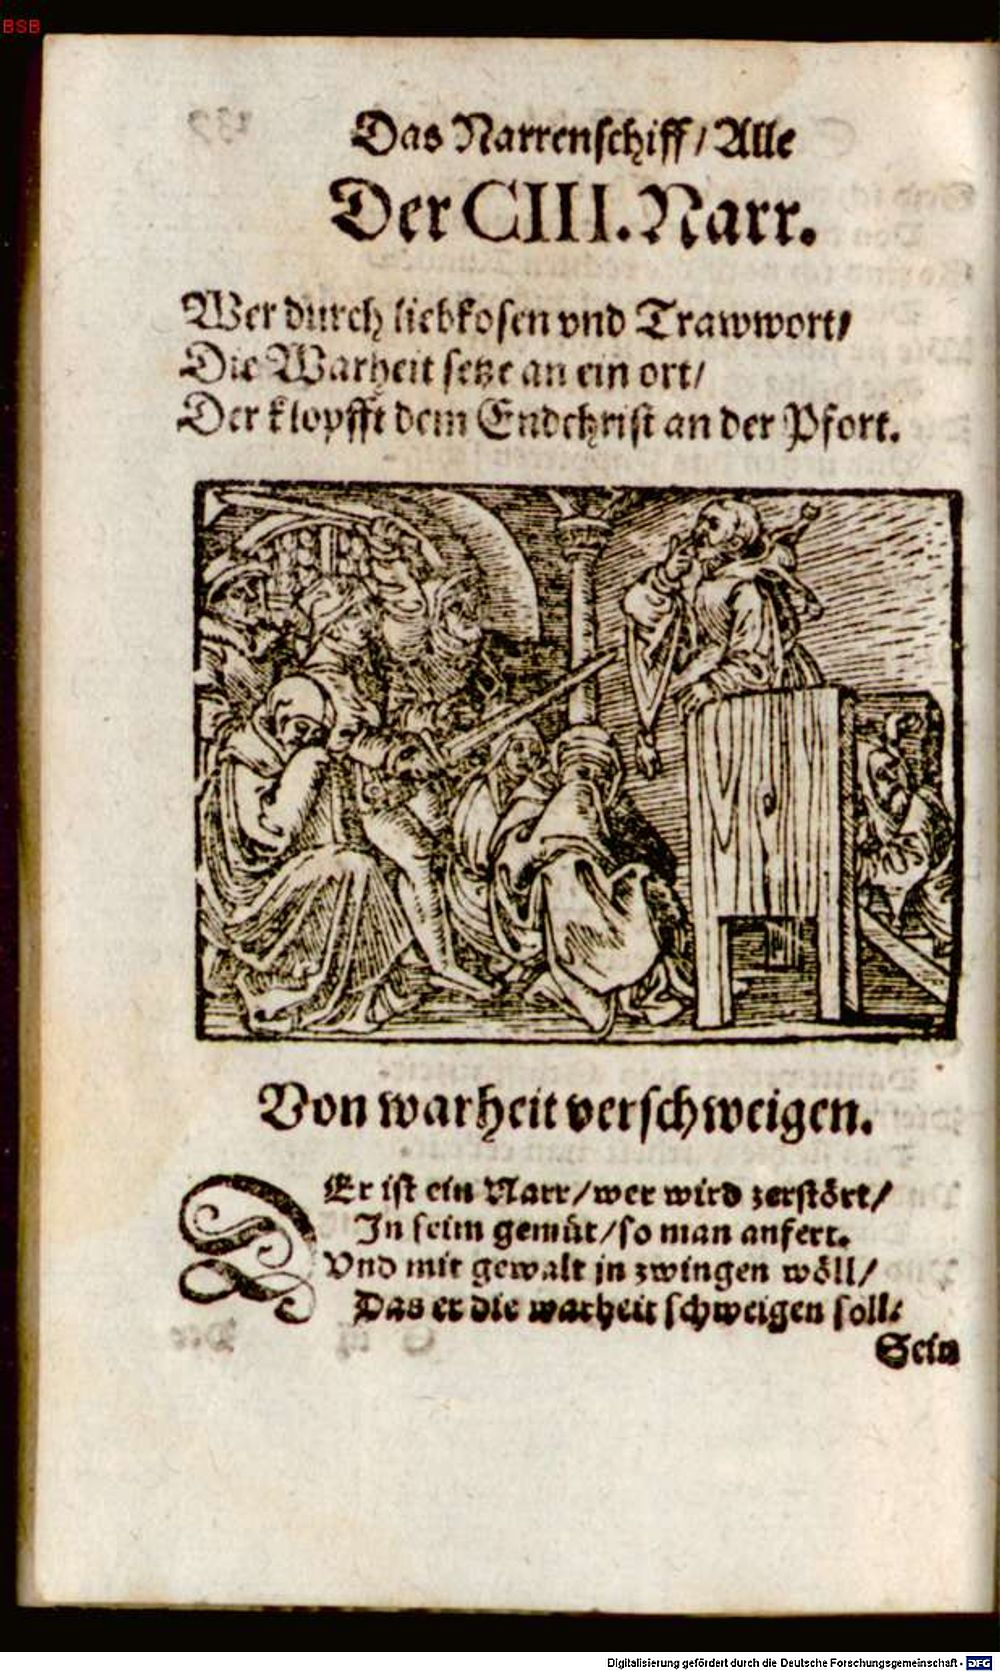 BSB
Das Narrenschiff / Alle
Der CIII. Narr.
Wer durch liebkosen vnd Trawwort /
Die Warheit setze an ein ort /
Der klopfft dem Endchrist an der Pfort.
Von warheit verschweigen.
DEr ist ein Narr / wer wird zerstört /
In seim gemüt / so man anfert.
Vnd mit gewalt jn zwingen wöll /
Das er die warheit schweigen soll:
Sein
Digitalisierung gefördert durch die Deutsche Forschungsgemeinschaft - DFG